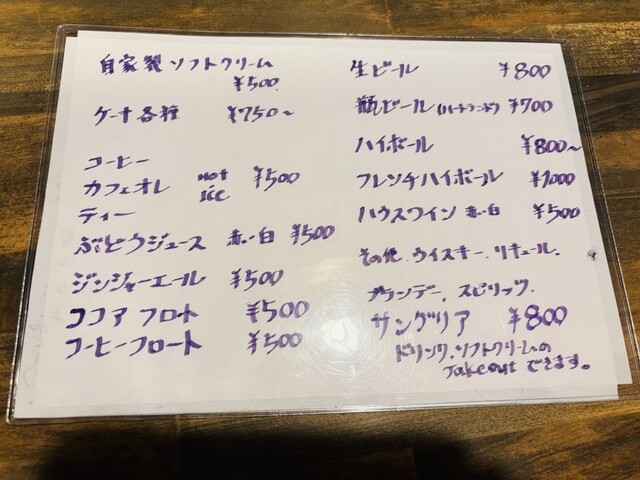 自家製ソフトクリーム
¥500
ケーキ各種 ¥750~
コーヒー
カフェオレ hot ice ¥500
ティー
ぶどうジュース 赤・白 ¥500
ジンジャーエール ¥500
ココアフロート ¥500
コーヒーフロート ¥500
生ビール ¥800
瓶ビール(ハートランド) ¥700
ハイボール ¥800~
フレンチハイボール ¥1000
ハウスワイン 赤・白 ¥500
その他、ウイスキー、リキュール、
ブランデー、スピリッツ、
サングリア ¥800
ドリンク、ソフトクリームの
Takeout できます。